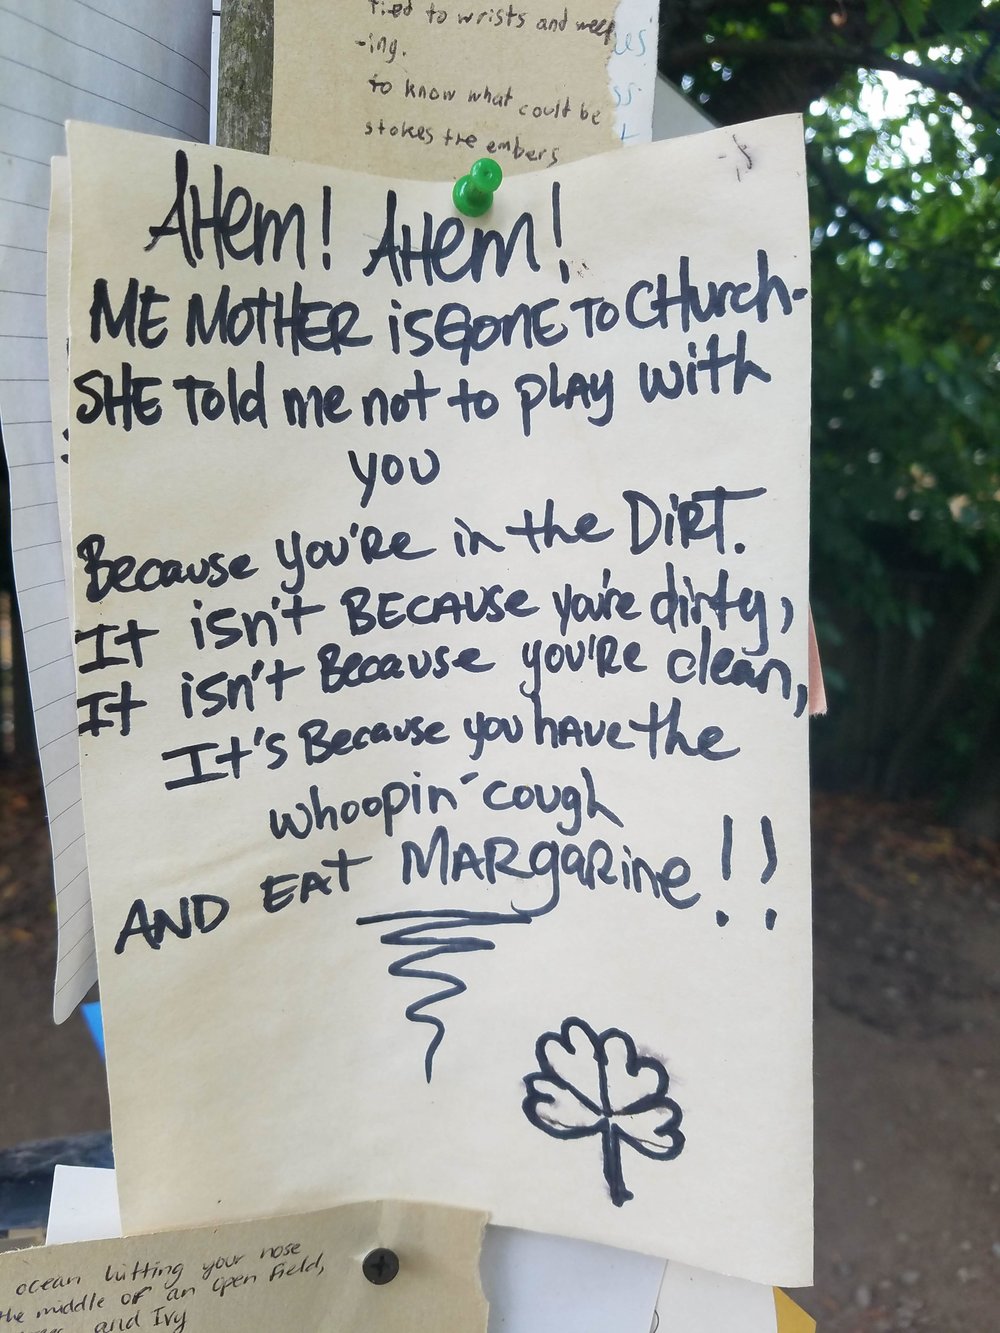 tied to wrists and weep
-ing.
to know what could be
stokes the embers
AHem! AHem!
ME MOTHER is GONE TO CHurch-
SHE Told me not to plAy with
you
Because you're in the DiRT.
It isn't BECAUSE you're dirty,
It isn't Because you're clean,
It's Because you have the
whoopin' cough
AND EAT MARgaRine!!
ocean hitting your nose
the middle of an open field,
and Ivy